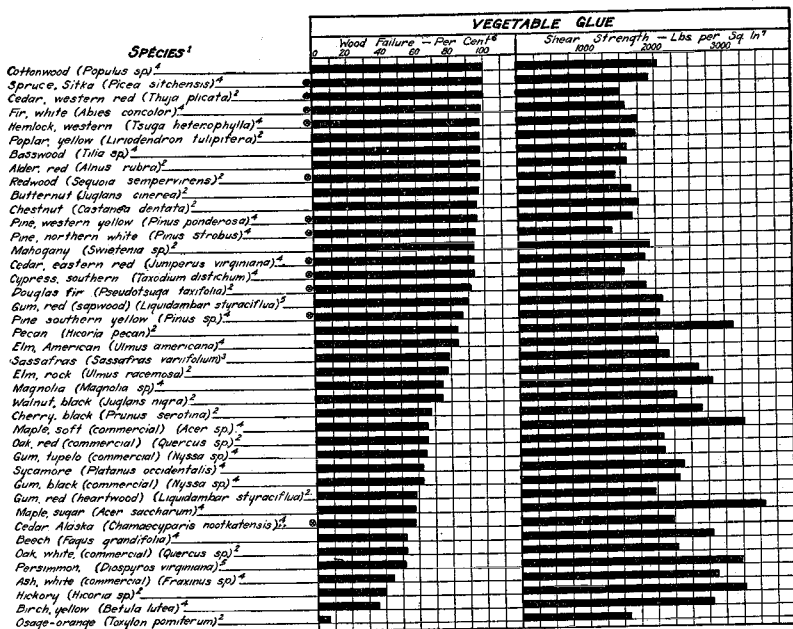 VEGETABLE GLUE
SPECIES¹
Wood Failure — Per Cent⁶
Shear Strength — Lbs. per Sq. In⁷
0 20 40 60 80 100
1000 2000 3000
Cottonwood (Populus sp)⁴
Spruce, Sitka (Picea sitchensis)⁴
Cedar, western red (Thuja plicata)²
Fir, white (Abies concolor)⁴
Hemlock, western (Tsuga heterophylla)⁴
Poplar, yellow (Liriodendron tulipifera)²
Basswood (Tilia sp)⁴
Alder, red (Alnus rubra)²
Redwood (Sequoia sempervirens)²
Butternut (Juglans cinerea)²
Chestnut (Castanea dentata)²
Pine, western yellow (Pinus ponderosa)⁴
Pine, northern white (Pinus strobus)⁴
Mahogany (Swietenia sp)²
Cedar, eastern red (Juniperus virginiana)⁴
Cypress, southern (Taxodium distichum)⁴
Douglas fir (Pseudotsuga taxifolia)²
Gum, red (sapwood) (Liquidambar styraciflua)⁵
Pine southern yellow (Pinus sp.)⁴
Pecan (Hicoria pecan)²
Elm, American (Ulmus americana)⁴
Sassafras (Sassafras variifolium)³
Elm, rock (Ulmus racemosa)²
Magnolia (Magnolia sp)⁴
Walnut, black (Juglans nigra)²
Cherry, black (Prunus serotina)²
Maple, soft (commercial) (Acer sp.)⁴
Oak, red (commercial) (Quercus sp)²
Gum, tupelo (commercial) (Nyssa sp)⁴
Sycamore (Platanus occidentalis)⁴
Gum, black (commercial) (Nyssa sp)⁴
Gum, red (heartwood) (Liquidambar styraciflua)²
Maple, sugar (Acer saccharum)⁴
Cedar Alaska (Chamaecyparis nootkatensis)⁴
Beech (Fagus grandifolia)⁴
Oak, white, (commercial) (Quercus sp)²
Persimmon, (Diospyros virginiana)⁵
Ash, white (commercial) (Fraxinus sp)⁴
Hickory (Hicoria sp)²
Birch, yellow (Betula lutea)⁴
Osage-orange (Toxylon pomiferum)²